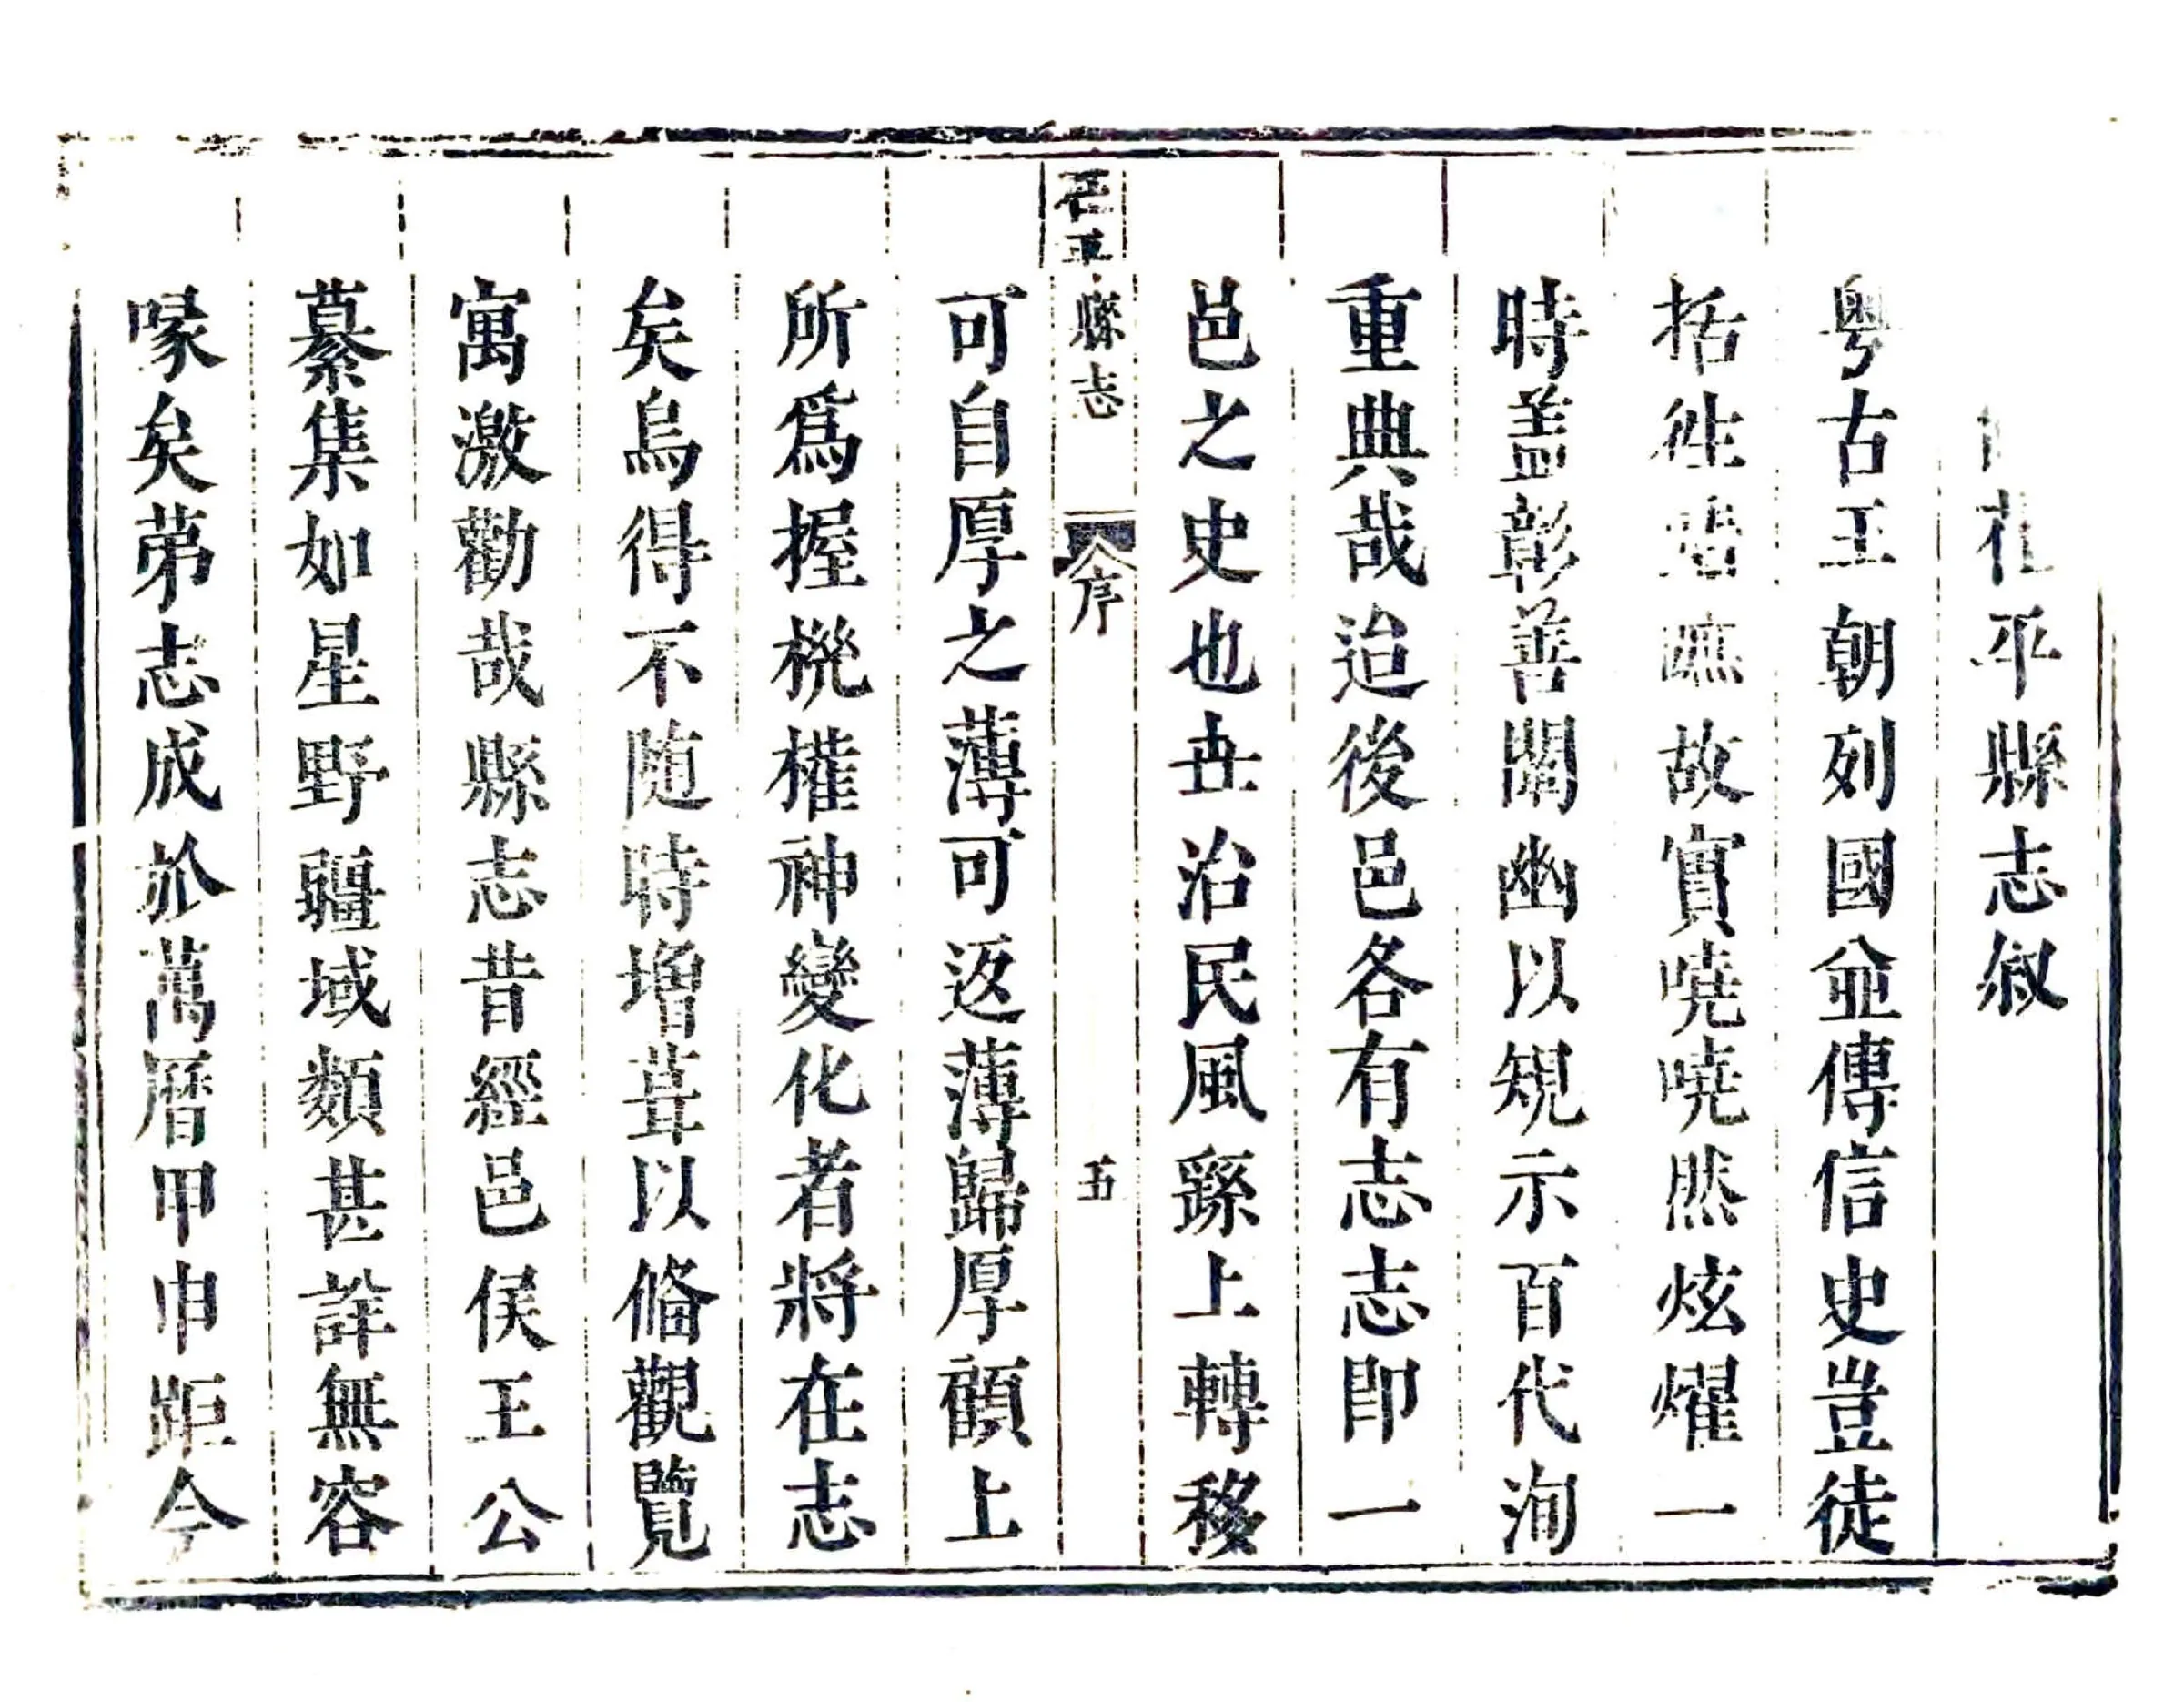 茌平縣志敘
粵古王朝列國並傳信史豈徒
括徃詰蹠故實嘵嘵然炫燿一
時盖彰善闡幽以規示百代洵
重典哉迨後邑各有志志即一
邑之史也丗治民風繇上轉移
茌平縣志 序 五
可自厚之薄可返薄歸厚顧上
所爲握㮣權神變化者將在志
矣烏得不随時增葺以俻觀覽
寓激勸哉縣志昔經邑侯王公
纂集如星野疆域類甚詳無容
喙矣苐志成於萬曆甲申距今